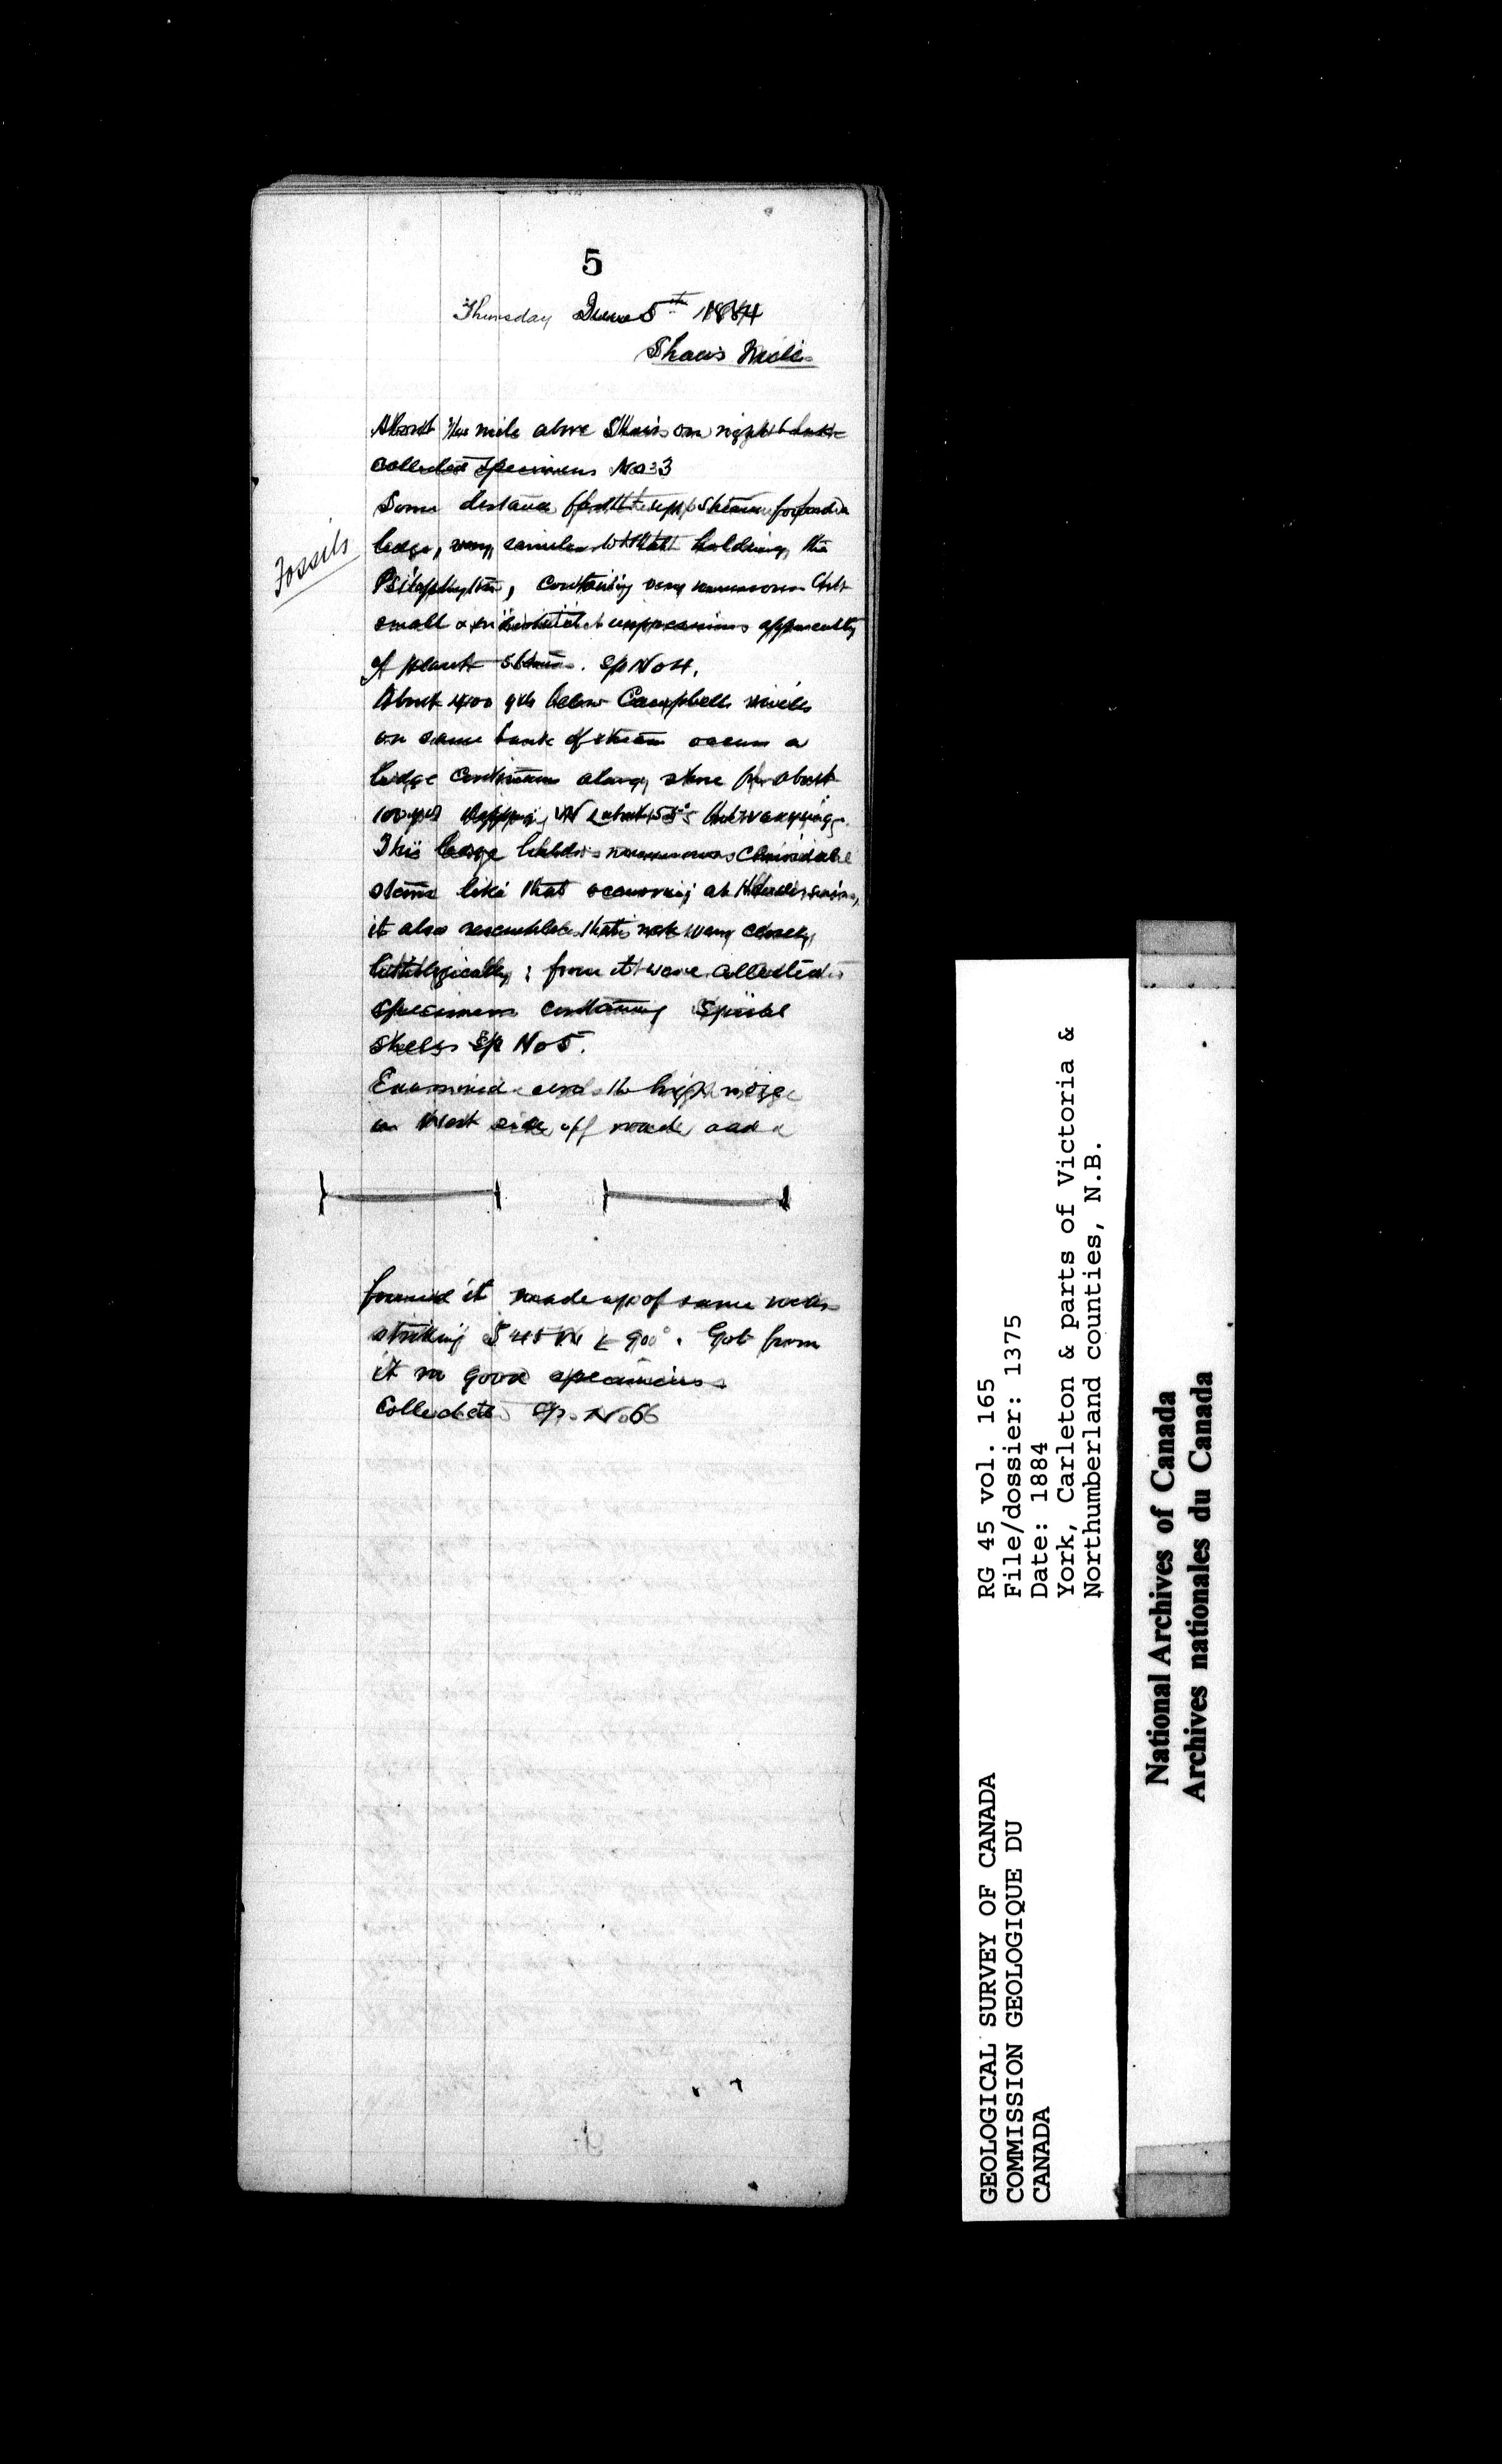 5
Thursday June 5th 1884
Shaws Mills
About 1/2 mile above Shaws on right bank
collected specimens No 3
Some distance farther up stream found a
ledge, very similar to that holding the
Fossils
Psilophyton, containing very numerous but
small & indistinct impressions apparently
of plant stems. Sp No 4.
About 400 yds below Campbells mills
on same bank of stream occurs a
ledge continuous along shore for about
100 yds dipping N L about 55° but varying.
This ledge holds numerous Crinoidal
stems like that occurring at Hendersons,
it also resembles that rock very closely
lithologically; from it were collected
specimens containing Spiral
shells Sp No 5.
Examined also the high ridge
on West side of road and
found it made up of same rocks
striking S 45 W L 90°. Got from
it no good specimens
Collected Sp. No 6
RG 45 vol. 165
File/dossier: 1375
Date: 1884
York, Carleton & parts of Victoria &
Northumberland counties, N.B.
GEOLOGICAL SURVEY OF CANADA
COMMISSION GEOLOGIQUE DU
CANADA
National Archives of Canada
Archives nationales du Canada